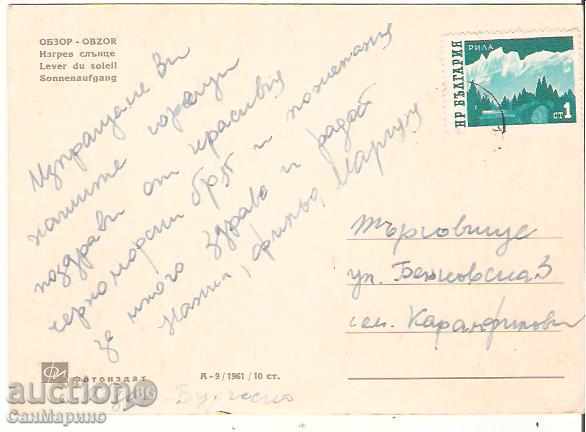 ОБЗОР - OBZOR
Изгрев слънце
Lever du soleil
Sonnenaufgang
Изпращаме Ви
нашите горещи
поздрави от красивия
черноморски бряг и пожелание
за много здраве и радост
Филю, Маргуч
РИЛА
НР БЪЛГАРИЯ
СТ 1
Търговище
ул. Бенковска 3
сем. Каранфилови
ФИ
Фотоиздат
А-9/1961/10 ст.
auction
СанМарино